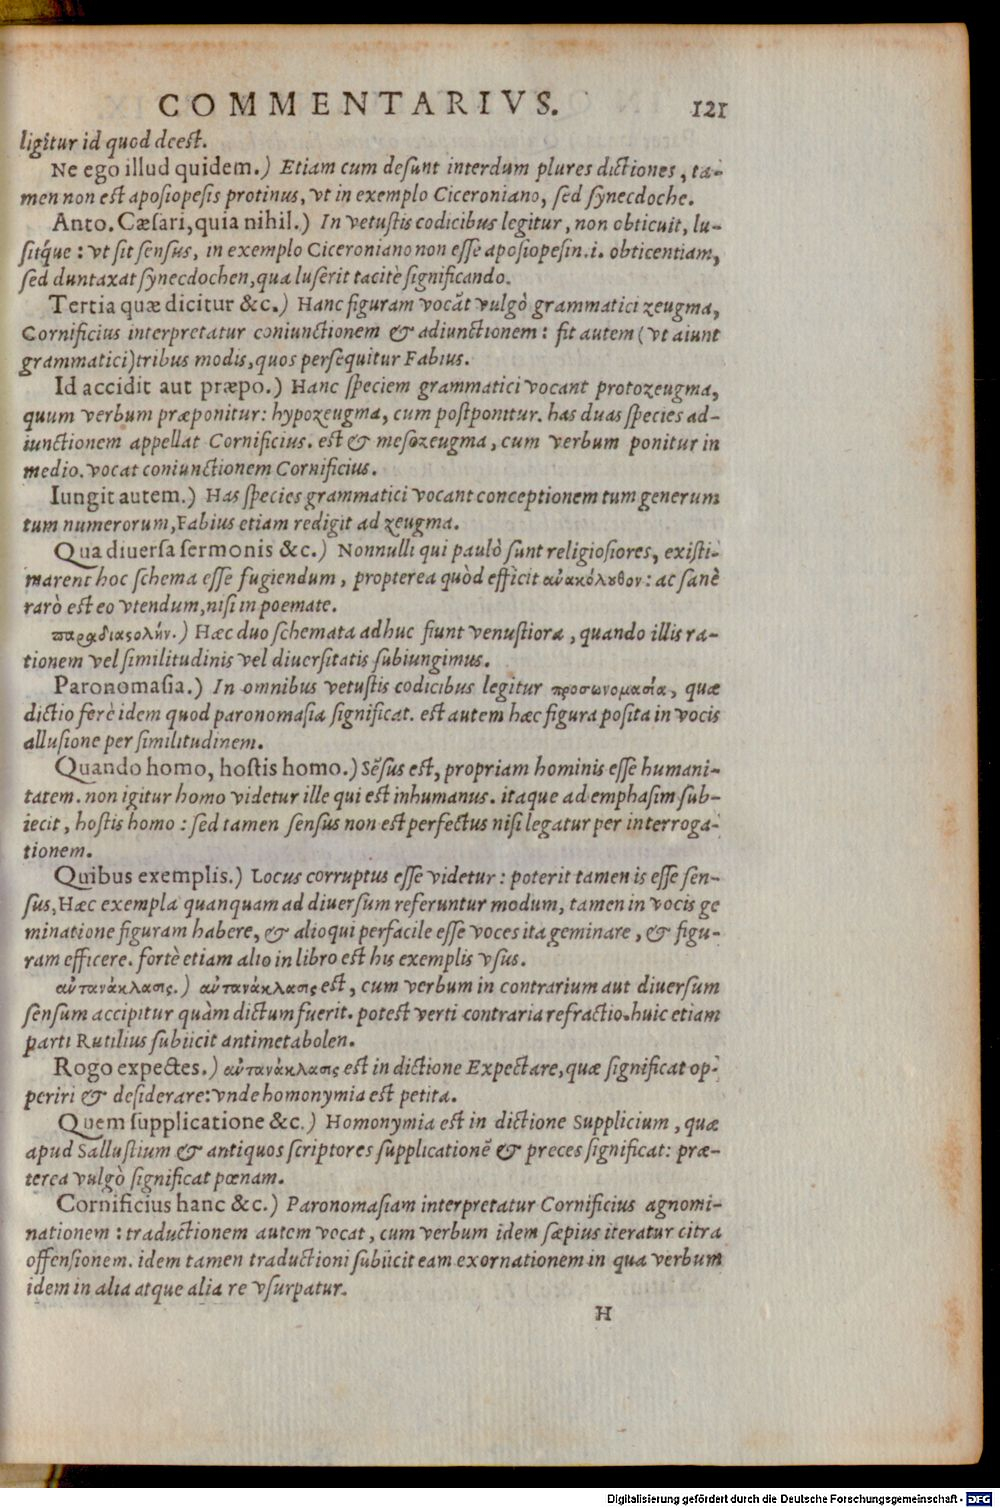 COMMENTARIVS. 121
ligitur id quod deest.
Ne ego illud quidem.) Etiam cum desunt interdum plures dictiones, ta-
men non est aposiopesis protinus, vt in exemplo Ciceroniano, sed synecdoche.
Anto. Cæsari, quia nihil.) In vetustis codicibus legitur, non obticuit, lu-
sitq́ue: vt sit sensus, in exemplo Ciceroniano non esse aposiopesin .i. obticentiam,
sed duntaxat synecdochen, qua luserit tacitè significando.
Tertia quæ dicitur &c.) Hanc figuram vocãt vulgò grammatici zeugma,
Cornificius interpretatur coniunctionem & adiunctionem: fit autem (vt aiunt
grammatici) tribus modis, quos persequitur Fabius.
Id accidit aut præpo.) Hanc speciem grammatici vocant protozeugma,
quum verbum præponitur: hypozeugma, cum postponitur. has duas species ad-
iunctionem appellat Cornificius. est & mesozeugma, cum verbum ponitur in
medio. vocat coniunctionem Cornificius.
Iungit autem.) Has species grammatici vocant conceptionem tum generum
tum numerorum, Fabius etiam redigit ad zeugma.
Qua diuersa sermonis &c.) Nonnulli qui paulò sunt religiosiores, existi-
marent hoc schema esse fugiendum, propterea quòd efficit ἀνακόλουθον: ac sanè
rarò est eo vtendum, nisi in poemate.
παραδιαστολήν.) Hæc duo schemata adhuc fiunt venustiora, quando illis ra-
tionem vel similitudinis vel diuersitatis subiungimus.
Paronomasia.) In omnibus vetustis codicibus legitur προσωνομασία, quæ
dictio ferè idem quod paronomasia significat. est autem hæc figura posita in vocis
allusione per similitudinem.
Quando homo, hostis homo.) Sẽsus est, propriam hominis esse humani-
tatem. non igitur homo videtur ille qui est inhumanus. itaque ad emphasim sub-
iecit, hostis homo: sed tamen sensus non est perfectus nisi legatur per interroga-
tionem.
Quibus exemplis.) Locus corruptus esse videtur: poterit tamen is esse sen-
sus, Hæc exempla quanquam ad diuersum referuntur modum, tamen in vocis ge
minatione figuram habere, & alioqui perfacile esse voces ita geminare, & figu-
ram efficere. fortè etiam alio in libro est his exemplis vsus.
αὐτανάκλασις.) αὐτανάκλασις est, cum verbum in contrarium aut diuersum
sensum accipitur quàm dictum fuerit. potest verti contraria refractio. huic etiam
parti Rutilius subiicit antimetabolen.
Rogo expectes.) αὐτανάκλασις est in dictione Expectare, quæ significat op-
periri & desiderare: vnde homonymia est petita.
Quem supplicatione &c.) Homonymia est in dictione Supplicium, quæ
apud Sallustium & antiquos scriptores supplicationẽ & preces significat: præ-
terea vulgò significat pœnam.
Cornificius hanc &c.) Paronomasiam interpretatur Cornificius agnomi-
nationem: traductionem autem vocat, cum verbum idem sæpius iteratur citra
offensionem. idem tamen traductioni subiicit eam exornationem in qua verbum
idem in alia atque alia re vsurpatur.
H
Digitalisierung gefördert durch die Deutsche Forschungsgemeinschaft - DFG